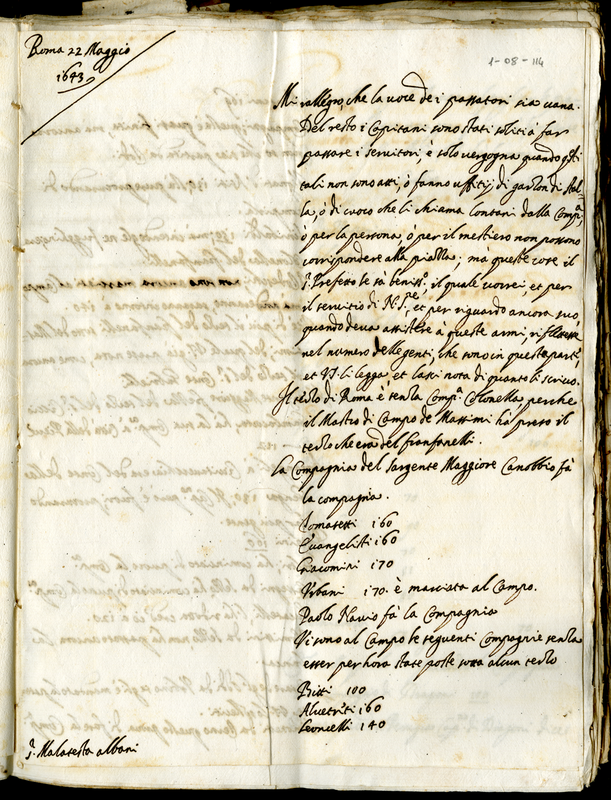 Roma 22 Maggio
1643
1-08-114
Mi rallegro, che la voce de i passatori sia vana.
Del resto i Capitani sono stati soliti à far
passare i servitori, è solo vergogna quando q.sti
tali non sono atti, ò fanno uffitij di garzon di stal=
la, ò di cuoco che li chiama lontani dalla Comp.a,
ò per la persona, ò per il mestiero non possono
corrispondere alla piazza; ma queste cose il
S. Prefetto le sà beniss.o, il quale vorrei, et per
il servitio di N. S.re, et per riguardo ancora suo,
quando deva assistere à queste armi, riflettesse
nel numero delle genti, che sono in queste parti,
et V.S. li legga, et lasci nota di quanto li scrivo.
Il terzo di Roma è senza Comp.a Colonella perche
il Mastro di Campo de Massimi hà preso il
terzo che era del Franfanelli.
La Compagnia del Sargente Maggiore Canobbio fà
la compagnia.
Tomasetti 160
Evangelisti 160
Giacomini 170
Urbani 170. è marciata al Campo.
Paolo Navio fà la Compagnia
Vi sono al Campo le seguenti Compagnie senza
esser per hora state poste sotto alcun terzo
Pitti 100
Alvetriti 160
Leoncelli 140
S. Malatesta Albani